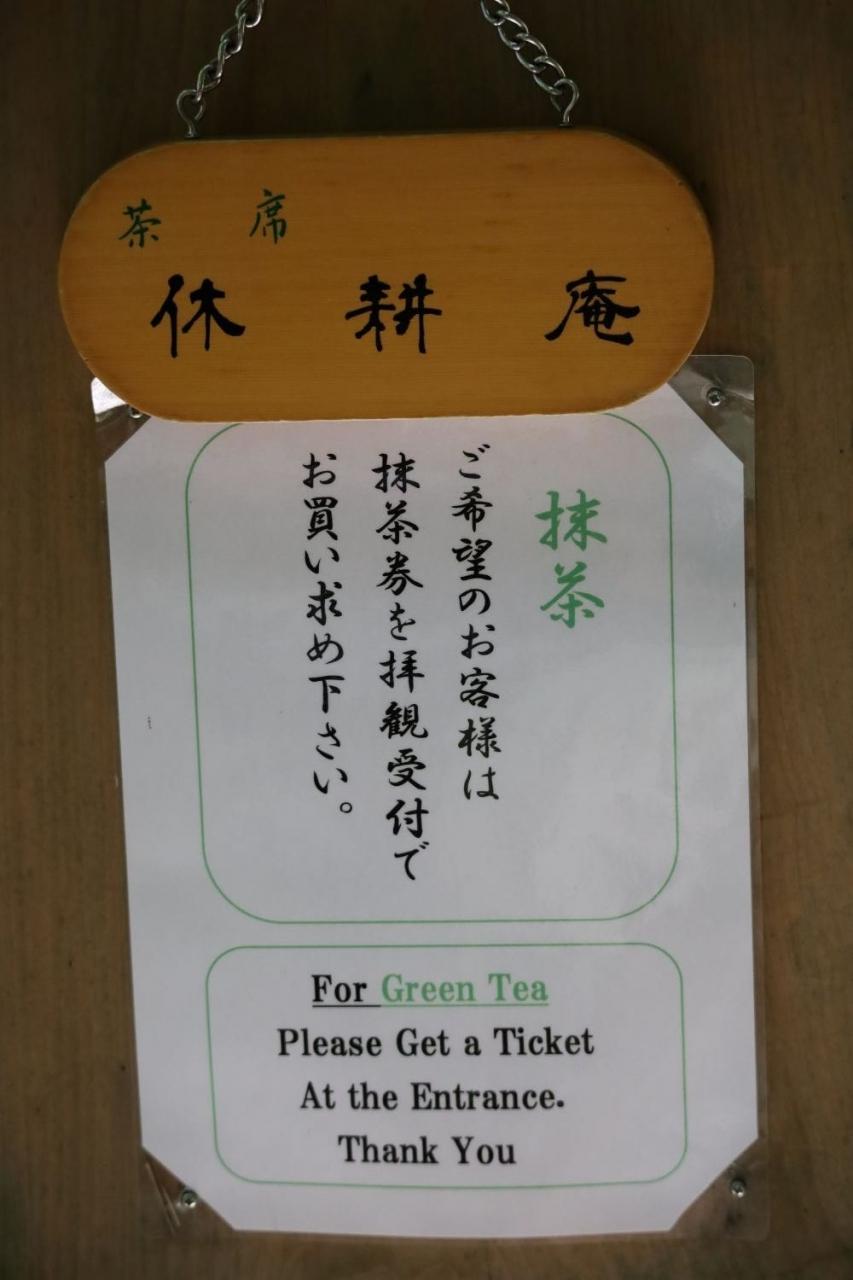 茶席
休耕庵
抹茶
ご希望のお客様は
抹茶券を拝観受付で
お買い求め下さい。
For Green Tea
Please Get a Ticket
At the Entrance.
Thank You